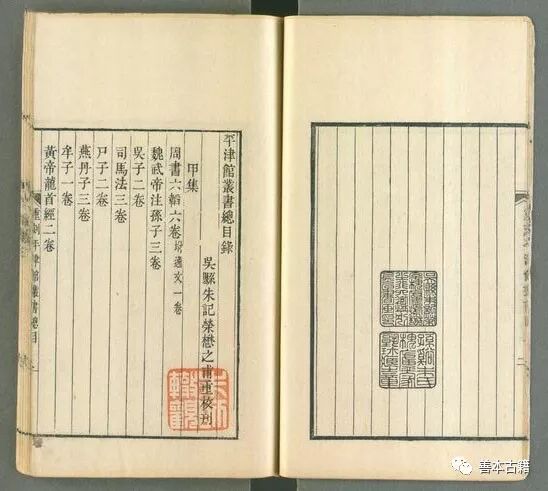 平津館叢書總目錄
吳縣朱記榮懋之甫重校刋
甲集
周書六韜六卷 坿逸文一卷
魏武帝注孫子三卷
吳子二卷
司馬法三卷
尸子二卷
燕丹子三卷
牟子一卷
黃帝龍首經二卷
重刻平津館叢書總目
善本古籍